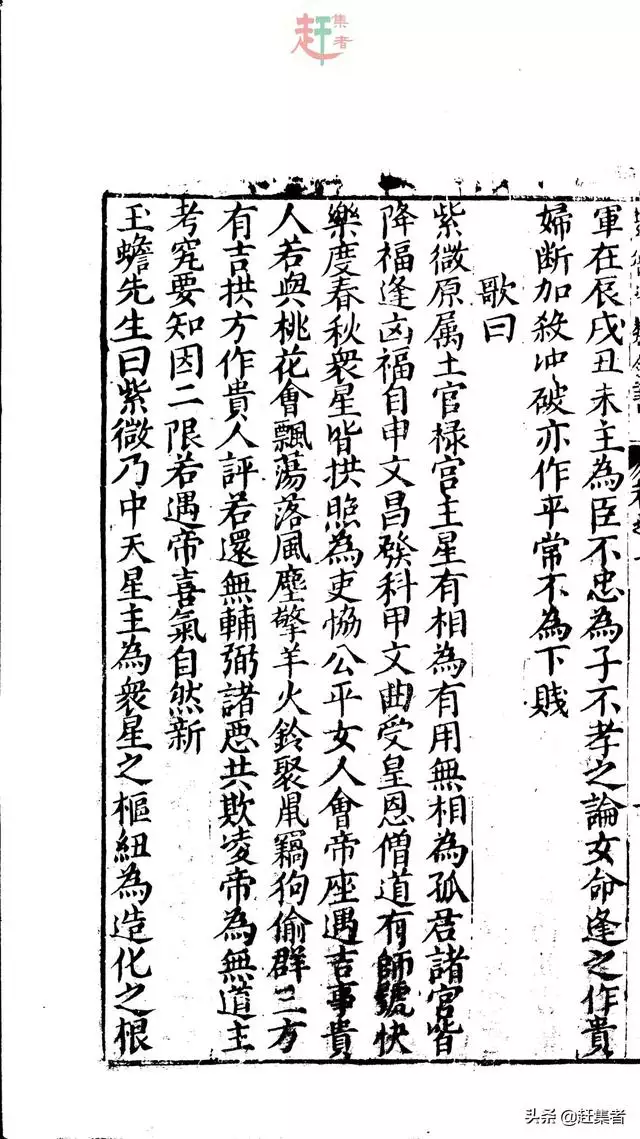 赶集者
軍在辰戌丑未主為臣不忠為子不孝之論女命逢之作貴
婦断加殺冲破亦作平常不為下賤
歌曰
紫微原属土官禄宫主星有相為有用無相為孤君諸宫皆
降福逢凶福自申文昌發科甲文曲受皇恩僧道有師號快
樂度春秋衆星皆拱照為吏恊公平女人會帝座遇吉事貴
人若與桃花會飄蕩落風塵擎羊火鈴聚鼠竊狗偷群三方
有吉拱方作貴人評若還無輔弼諸惡共欺凌帝為無道主
考究要知因二限若遇帝喜氣自然新
玉蟾先生曰紫微乃中天星主為衆星之樞紐為造化之根
头条 @赶集者